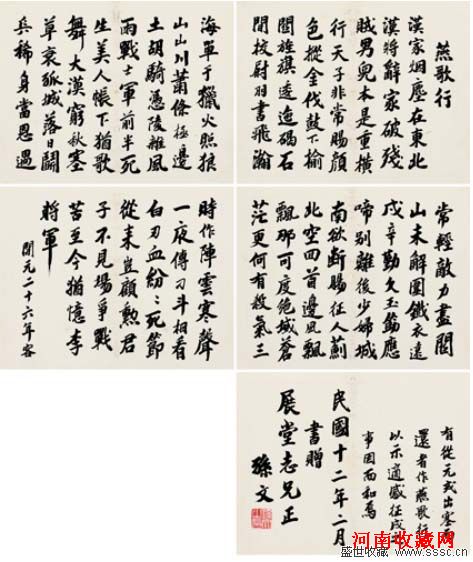 燕歌行
漢家烟塵在東北
漢將辭家破殘
賊男兒本是重橫
行天子非常賜顏
色摐金伐鼓下榆
關旌旗逶迤碣石
間校尉羽書飛瀚
海單于獵火照狼
山山川蕭條極邊
土胡騎憑陵雜風
雨戰士軍前半死
生美人帳下猶歌
舞大漠窮秋塞
草衰孤城落日鬭
兵稀身當恩遇
常輕敵力盡關
山未解圍鐵衣遠
戍辛勤久玉筯應
啼別離後少婦城
南欲斷腸征人薊
北空回首邊風飄
飄那可度絕域蒼
茫更何有殺氣三
時作陣雲寒聲
一夜傳刁斗相看
白刃血紛〻死節
從來豈顧勳君
子不見場爭戰
苦至今猶憶李
將軍
開元二十六年客
有從元戎出塞而
還者作燕歌行
以示適感征戍之
事因而和焉
民國十二年二月
書贈
展堂志兄正
孫文
河南收藏网
盛世收藏 www.sssc.cn